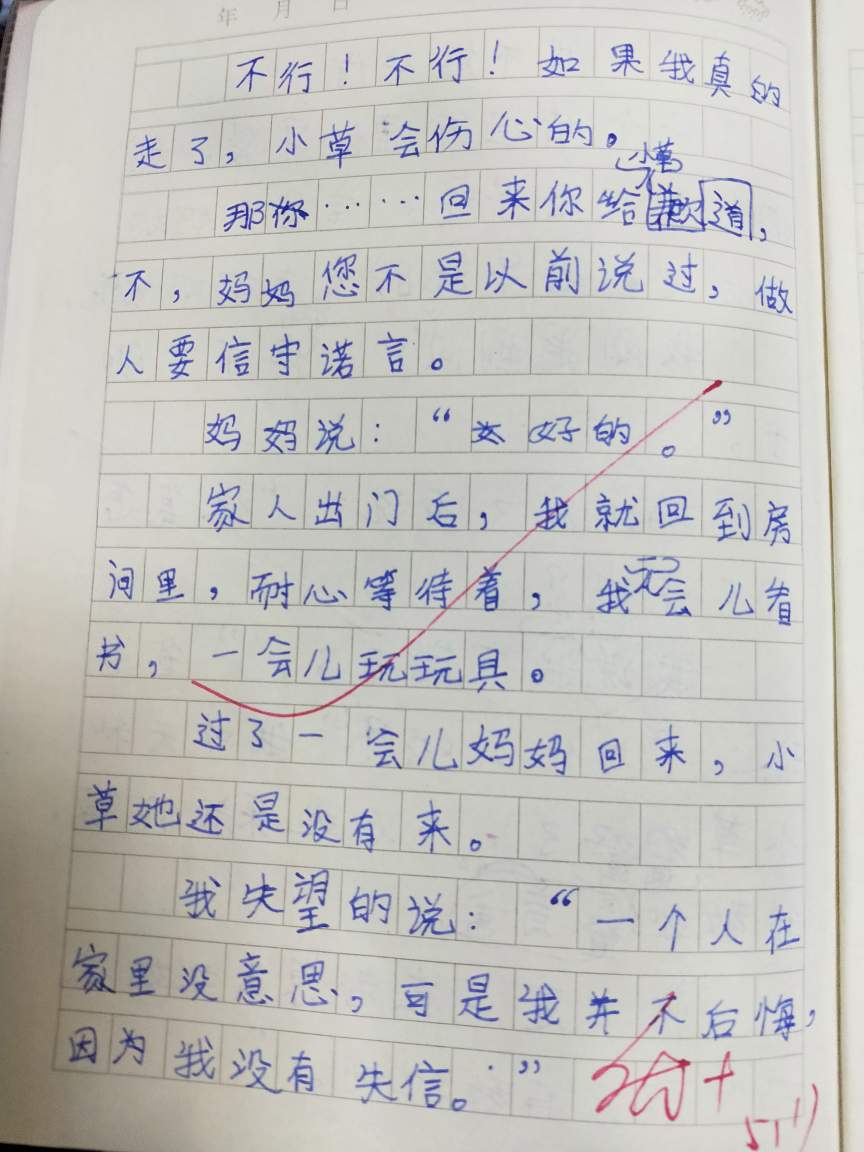 年 月 日
不行！不行！如果我真的
走了，小草会伤心的。
小草
那你……回来你给歉道，
不，妈妈您不是以前说过，做
人要信守诺言。
妈妈说：“好的。”
家人出门后，我就回到房
间里，耐心等待着，我一会儿看
书，一会儿玩玩具。
过了一会儿妈妈回来，小
草她还是没有来。
我失望的说：“一个人在
家里没意思，可是我并不后悔，
因为我没有失信。”
优+